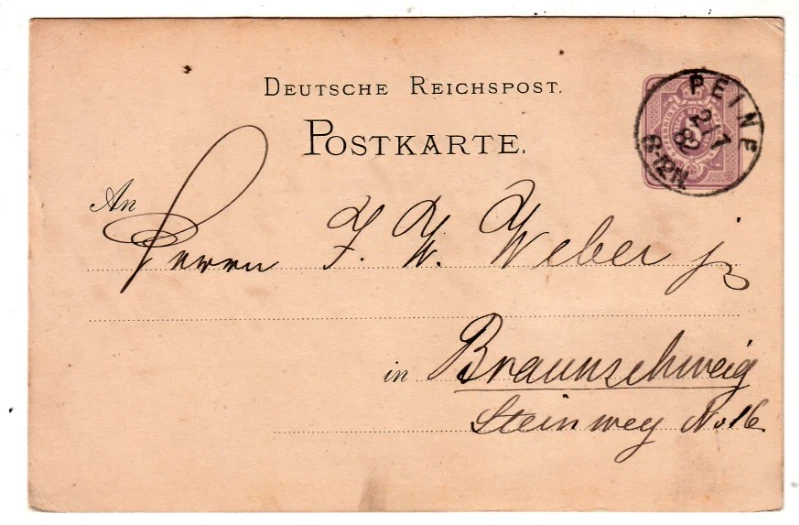 DEUTSCHE REICHSPOST.
POSTKARTE.
PEINE
21 7
82
6-12N.
An Herrn F. W. Weber jr
in Braunschweig
Steinweg No 16.